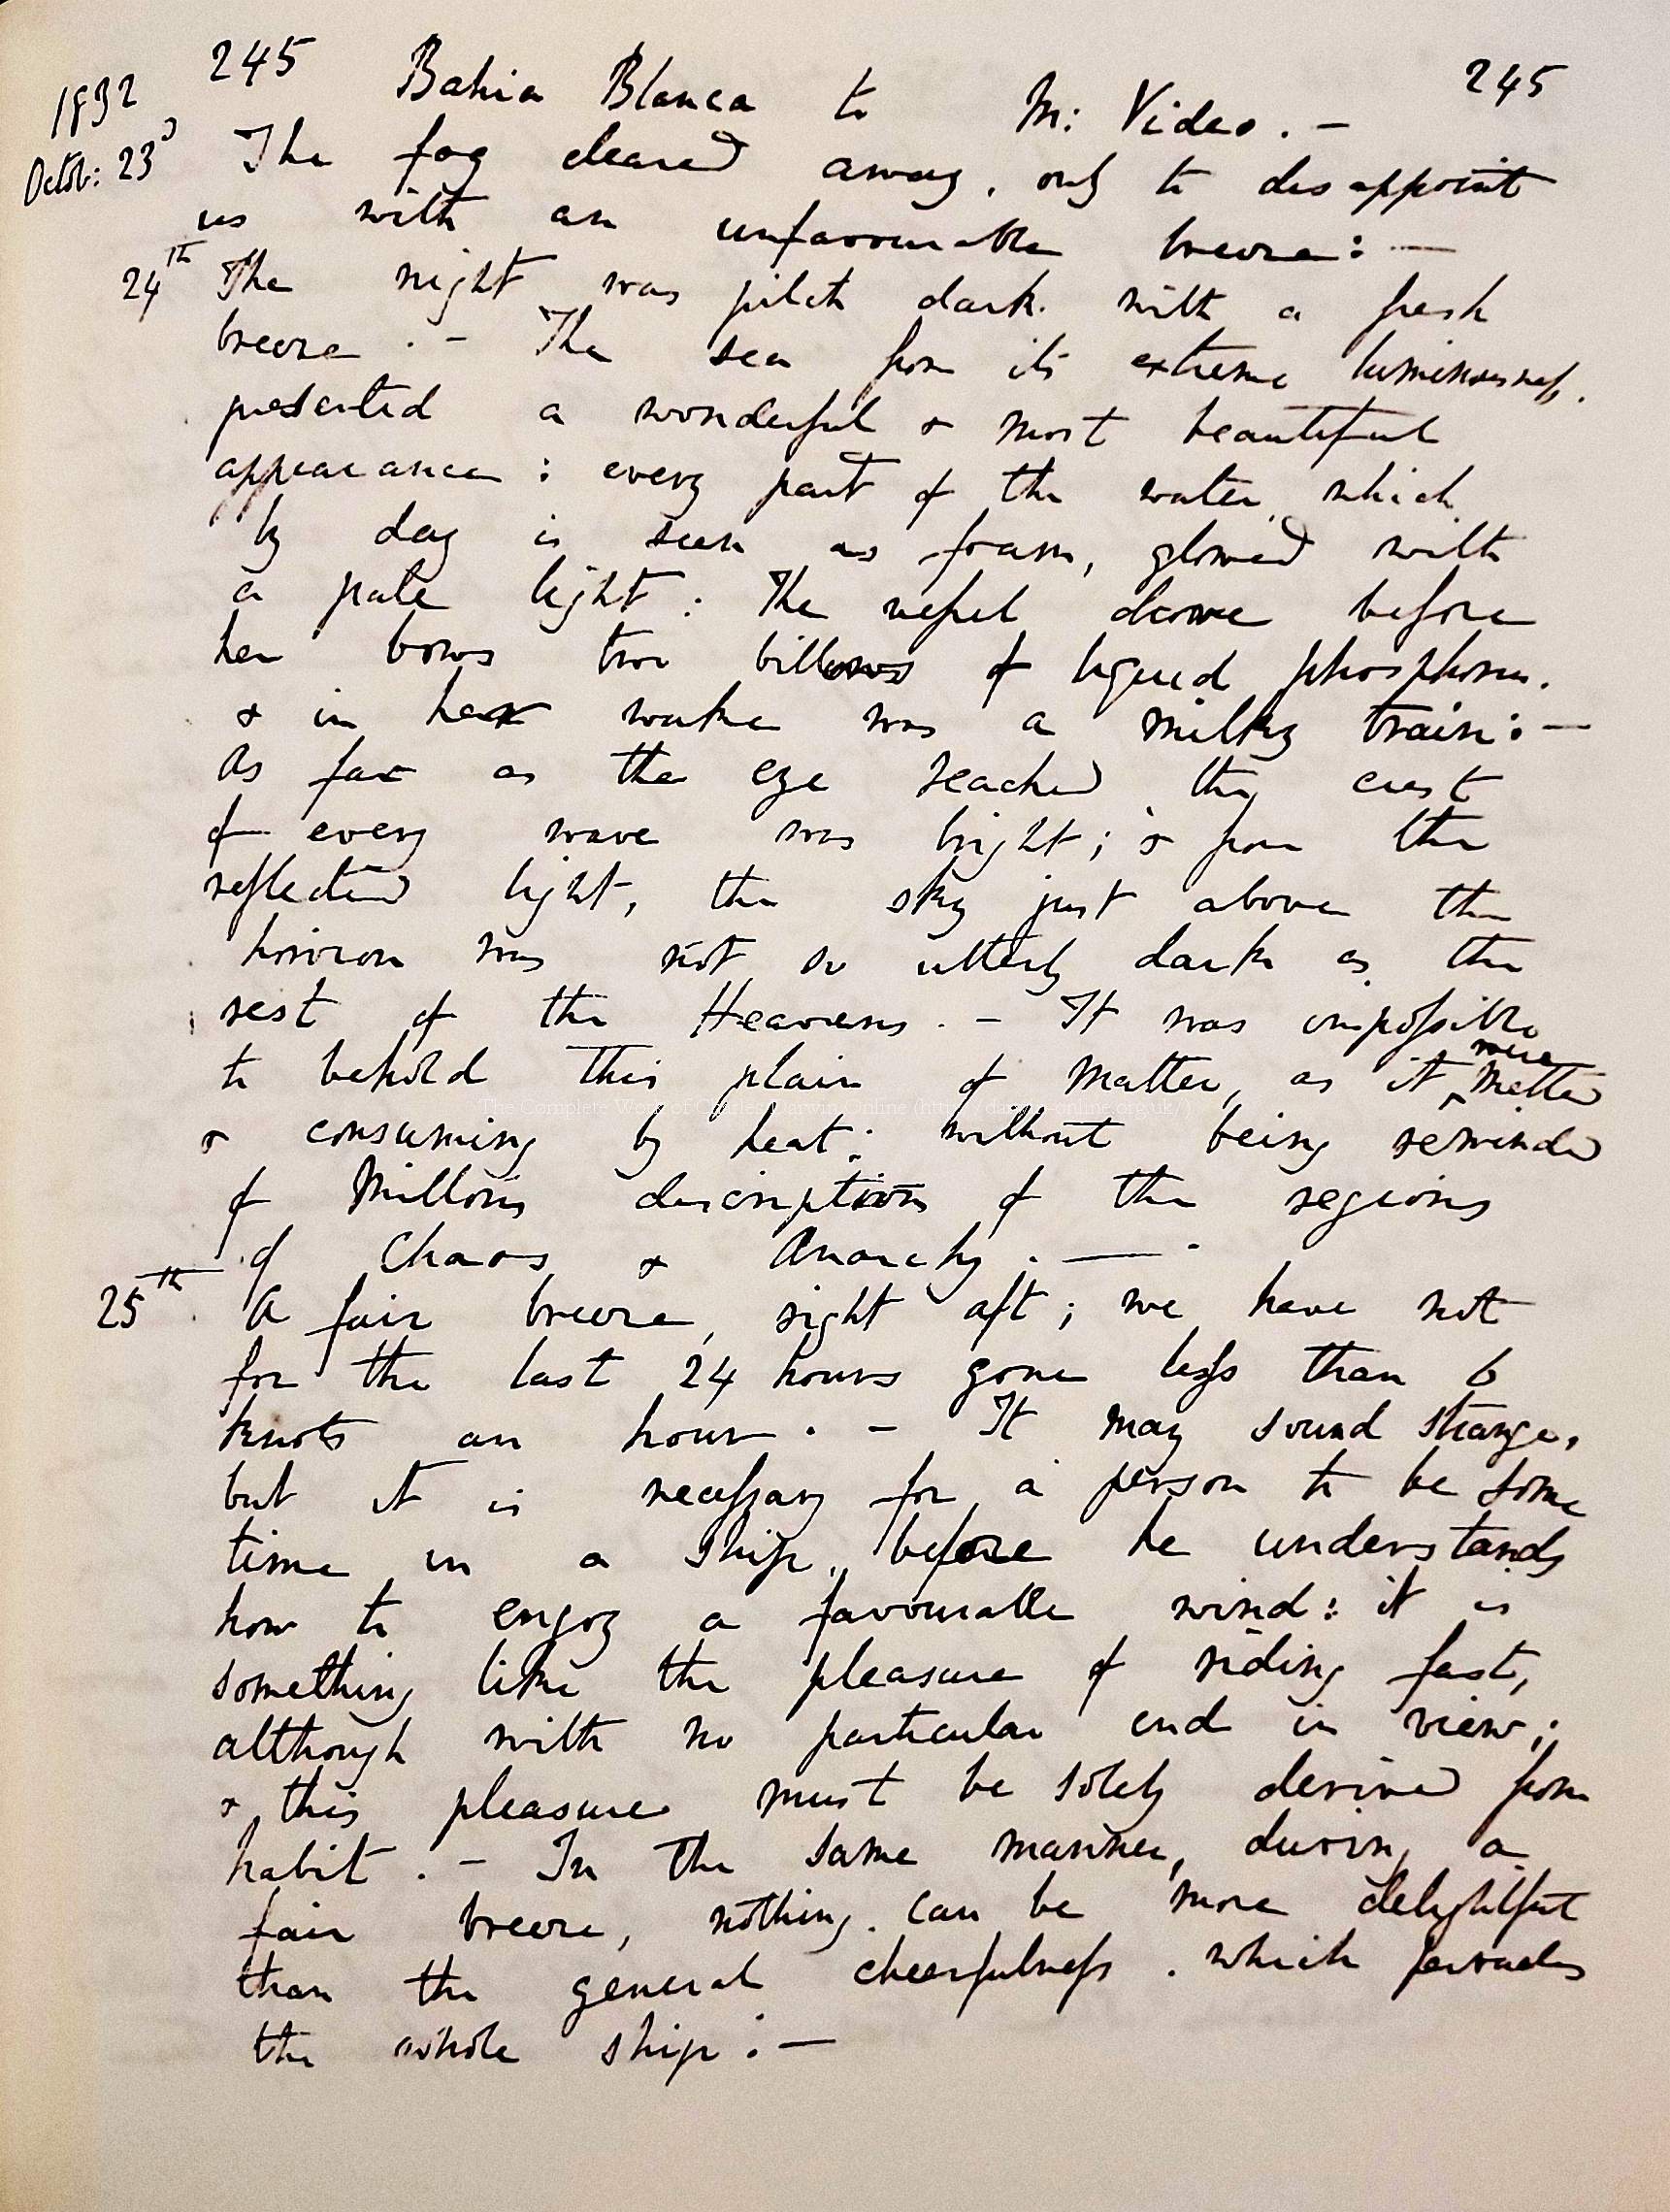 245 Bahia Blanca to M: Video. — 245
1832
Octob: 23d The fog cleared away, only to disappoint
us with an unfavourable breeze: —
24th The night was pitch dark. with a fresh
breeze. — The sea from its extreme luminousness,
presented a wonderful & most beautiful
appearance: every part of the water, which
by day is seen as foam, glowed with
a pale light: The vessel drove before
her bows two billows of liquid phosphorus.
& in her wake was a milky train: —
As far as the eye reached, the crest
of every wave was bright; & from the
reflected light, the sky just above the
horizon was not so utterly dark as the
rest of the Heavens. — It was impossible
to behold this plain of matter, as it were melted
& consuming by heat: without being reminded
of Miltons descriptions of the regions
of Chaos & Anarchy. —
25th A fair breeze, right aft; we have not
for the last 24 hours gone less than 6
knots an hour. — It may sound strange,
but it is necessary for a person to be some
time in a ship, before he understands
how to enjoy a favourable wind: it is
something like the pleasure of riding fast,
although with no particular end in view;
& this pleasure must be solely derived from
habit. — In the same manner, during a
fair breeze, nothing can be more delightful
than the general cheerfulness. which pervades
the whole ship: —